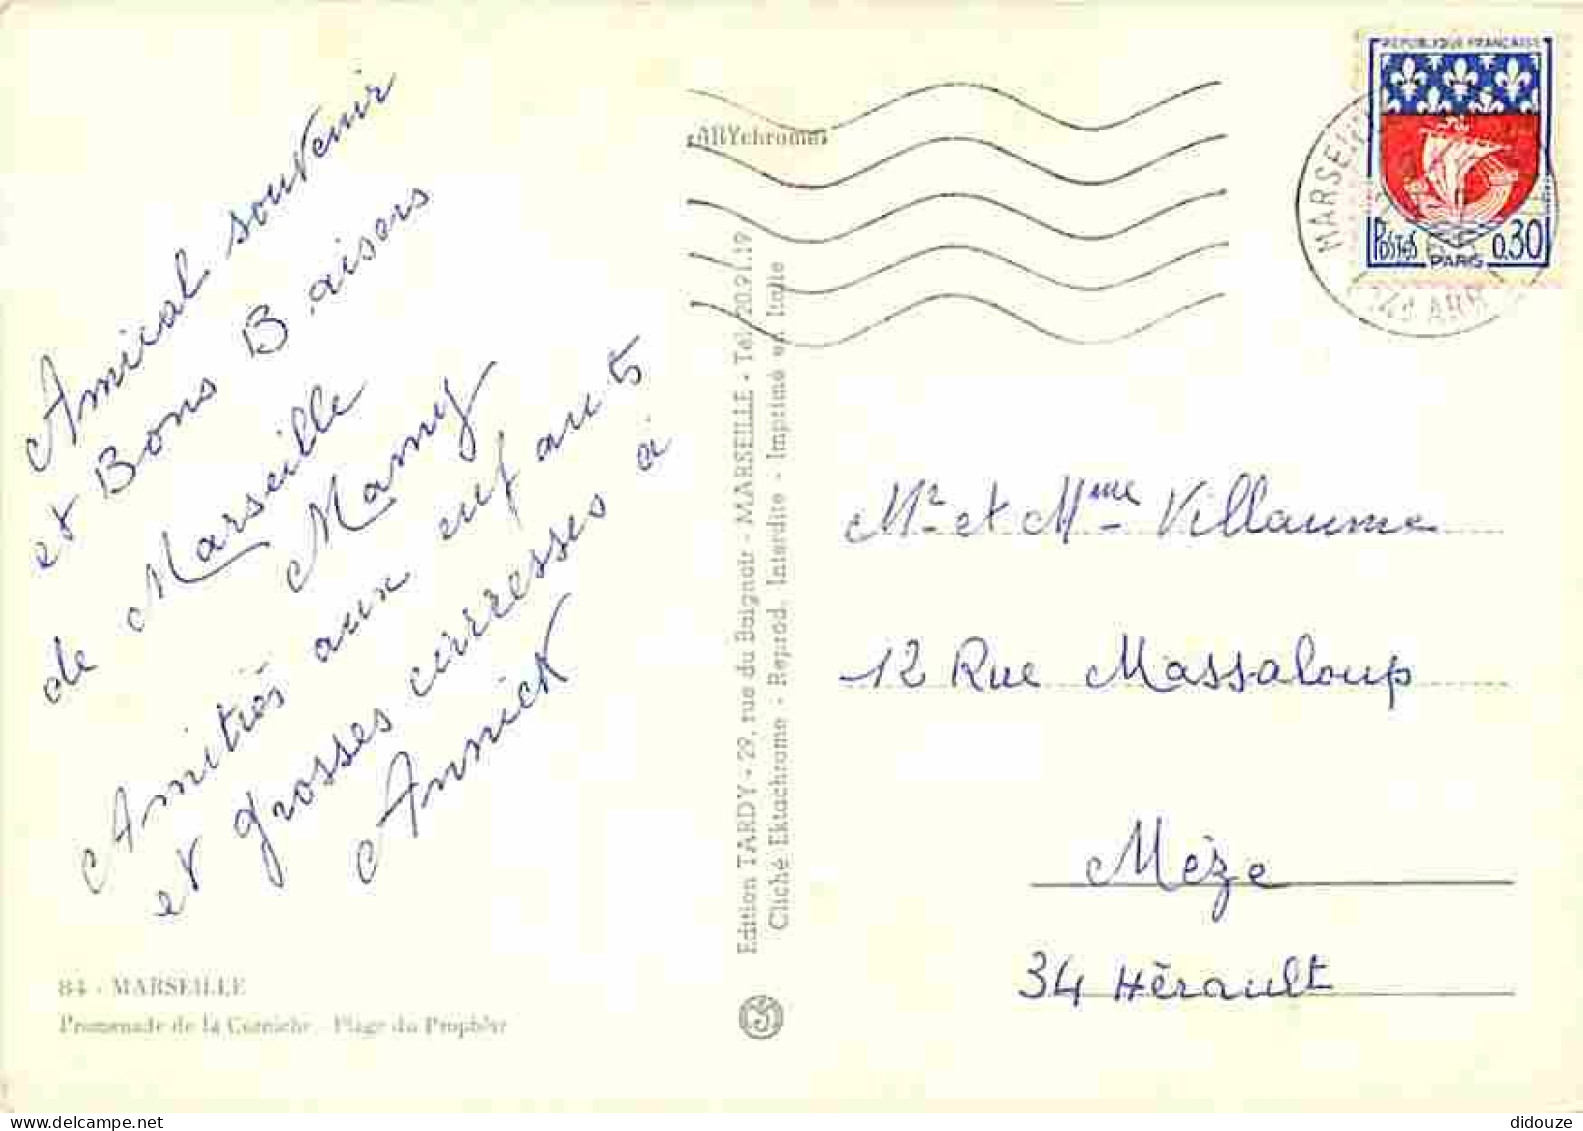 Amical souvenir
et Bons Baisers
de Marseille
Mamy
Amitiés aux neuf au 5
et grosses cirresses à
Annick
84 - MARSEILLE
Promenade de la Corniche. Plage du Prophète
TARYchrome
Edition TARDY - 29, rue du Baignoir - MARSEILLE - Tél. 20.91.19
Cliché Ektachrome - Reprod. Interdite - Imprimé en Italie
REPUBLIQUE FRANÇAISE
POSTES 0,30
PARIS
MARSEILLE
ARR
Mr et Mme Villaume
12 Rue Massaloup
Mèze
34 Hérault
didouze